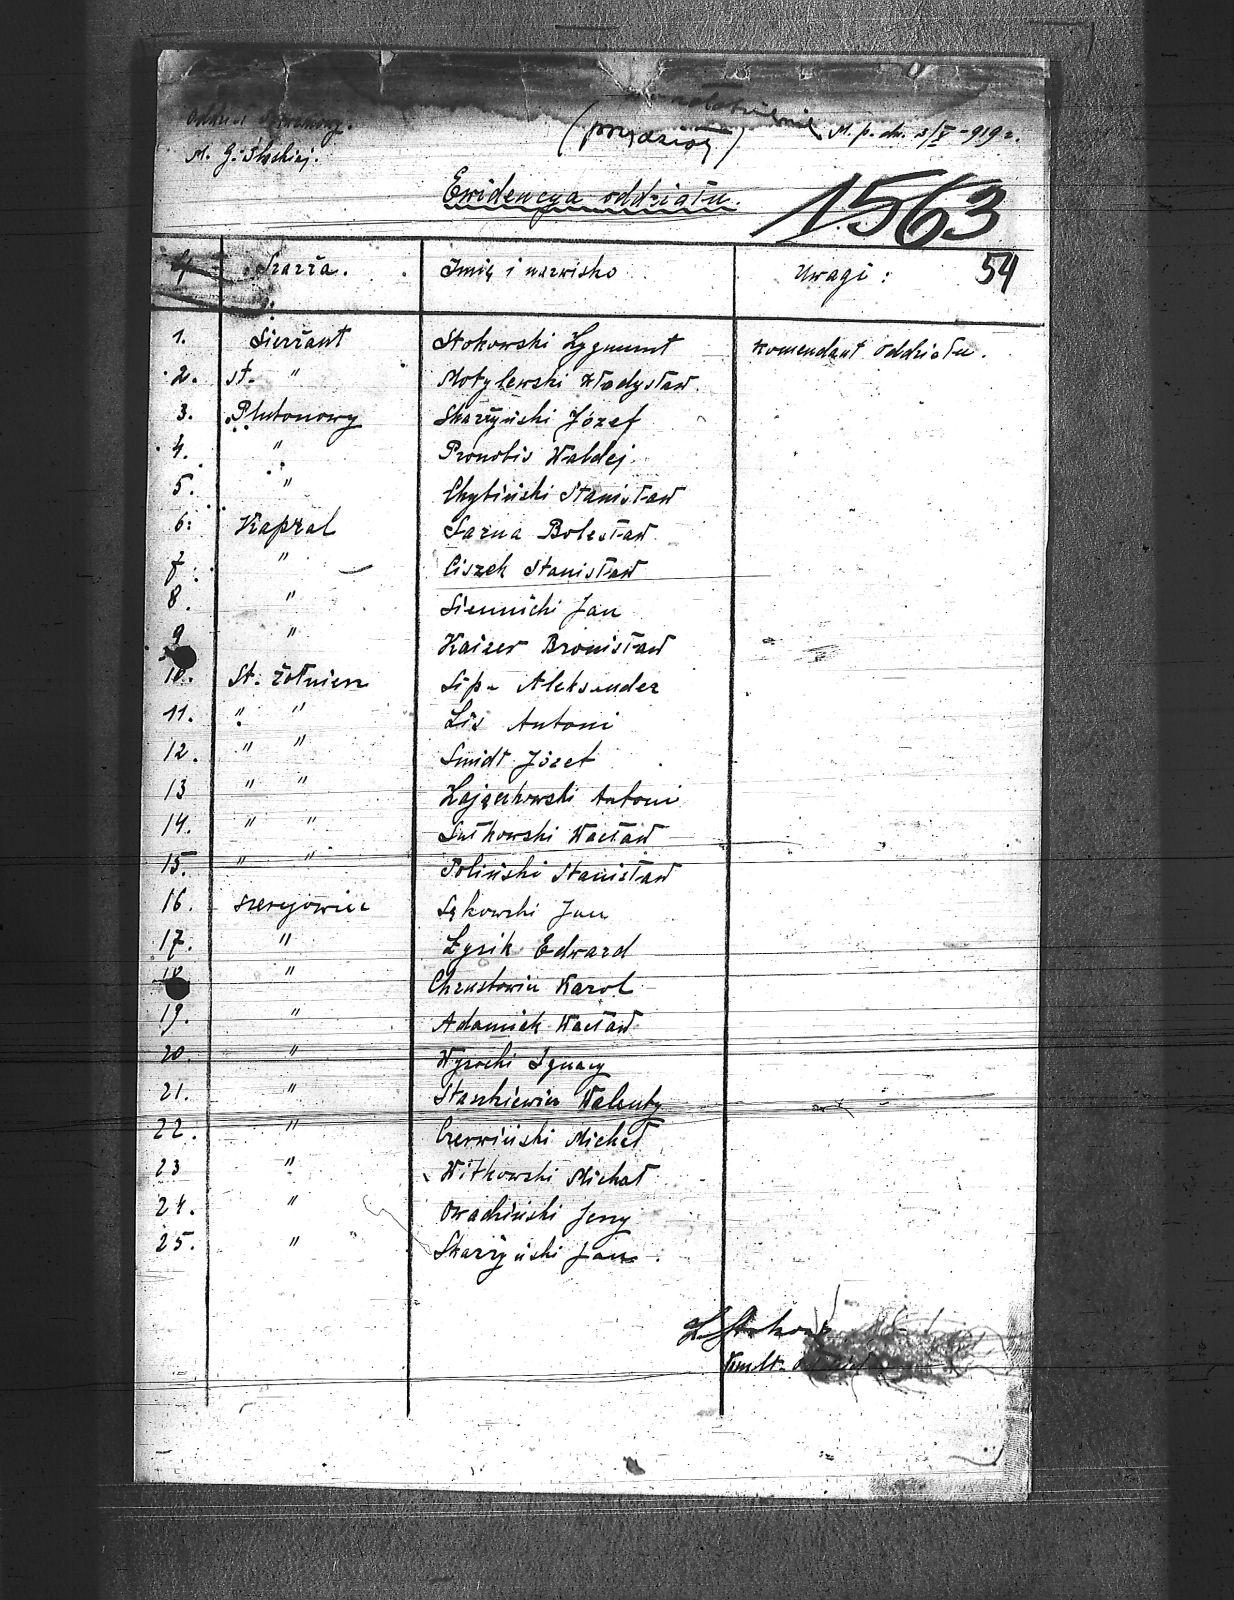 Oddział
(przydział) M. p. dn. 3/V-919 r.
M. G. Śląskiej.
Ewidencya oddziału.
1563
Szarża. Imię i nazwisko Uwagi: 54
1. Sierżant Stokowski Zygmunt Komendant oddziału.
2. st. " Motylewski Władysław.
3. Plutonowy Skarżyński Józef
4. " Pronobis Waldej.
5. " Chybiński Stanisław
6. Kapral Sarna Bolesław
7. " Ciszek Stanisław
8. " Siennicki Jan
9 " Kaizer Bronisław
10. St. żołnierz Sipa Aleksander
11. " " Lis Antoni
12. " " Smidt Józef
13 " " Zajączkowski Antoni
14. " " Sutkowski Wacław
15. " " Poliński Stanisław
16. szeregowiec Sękowski Jan
17. " Łysik Edward
18 " Chrustowicz Karol
19. " Adamiak Wacław
20. " Wysocki Ignacy
21. " Staszkiewicz Walenty
22. " Czerwiński Michał
23 " Witkowski Michał
24. " Owadziński Jerzy
25. " Skarżyński Jan.
Z. Stokow
Kmdt.